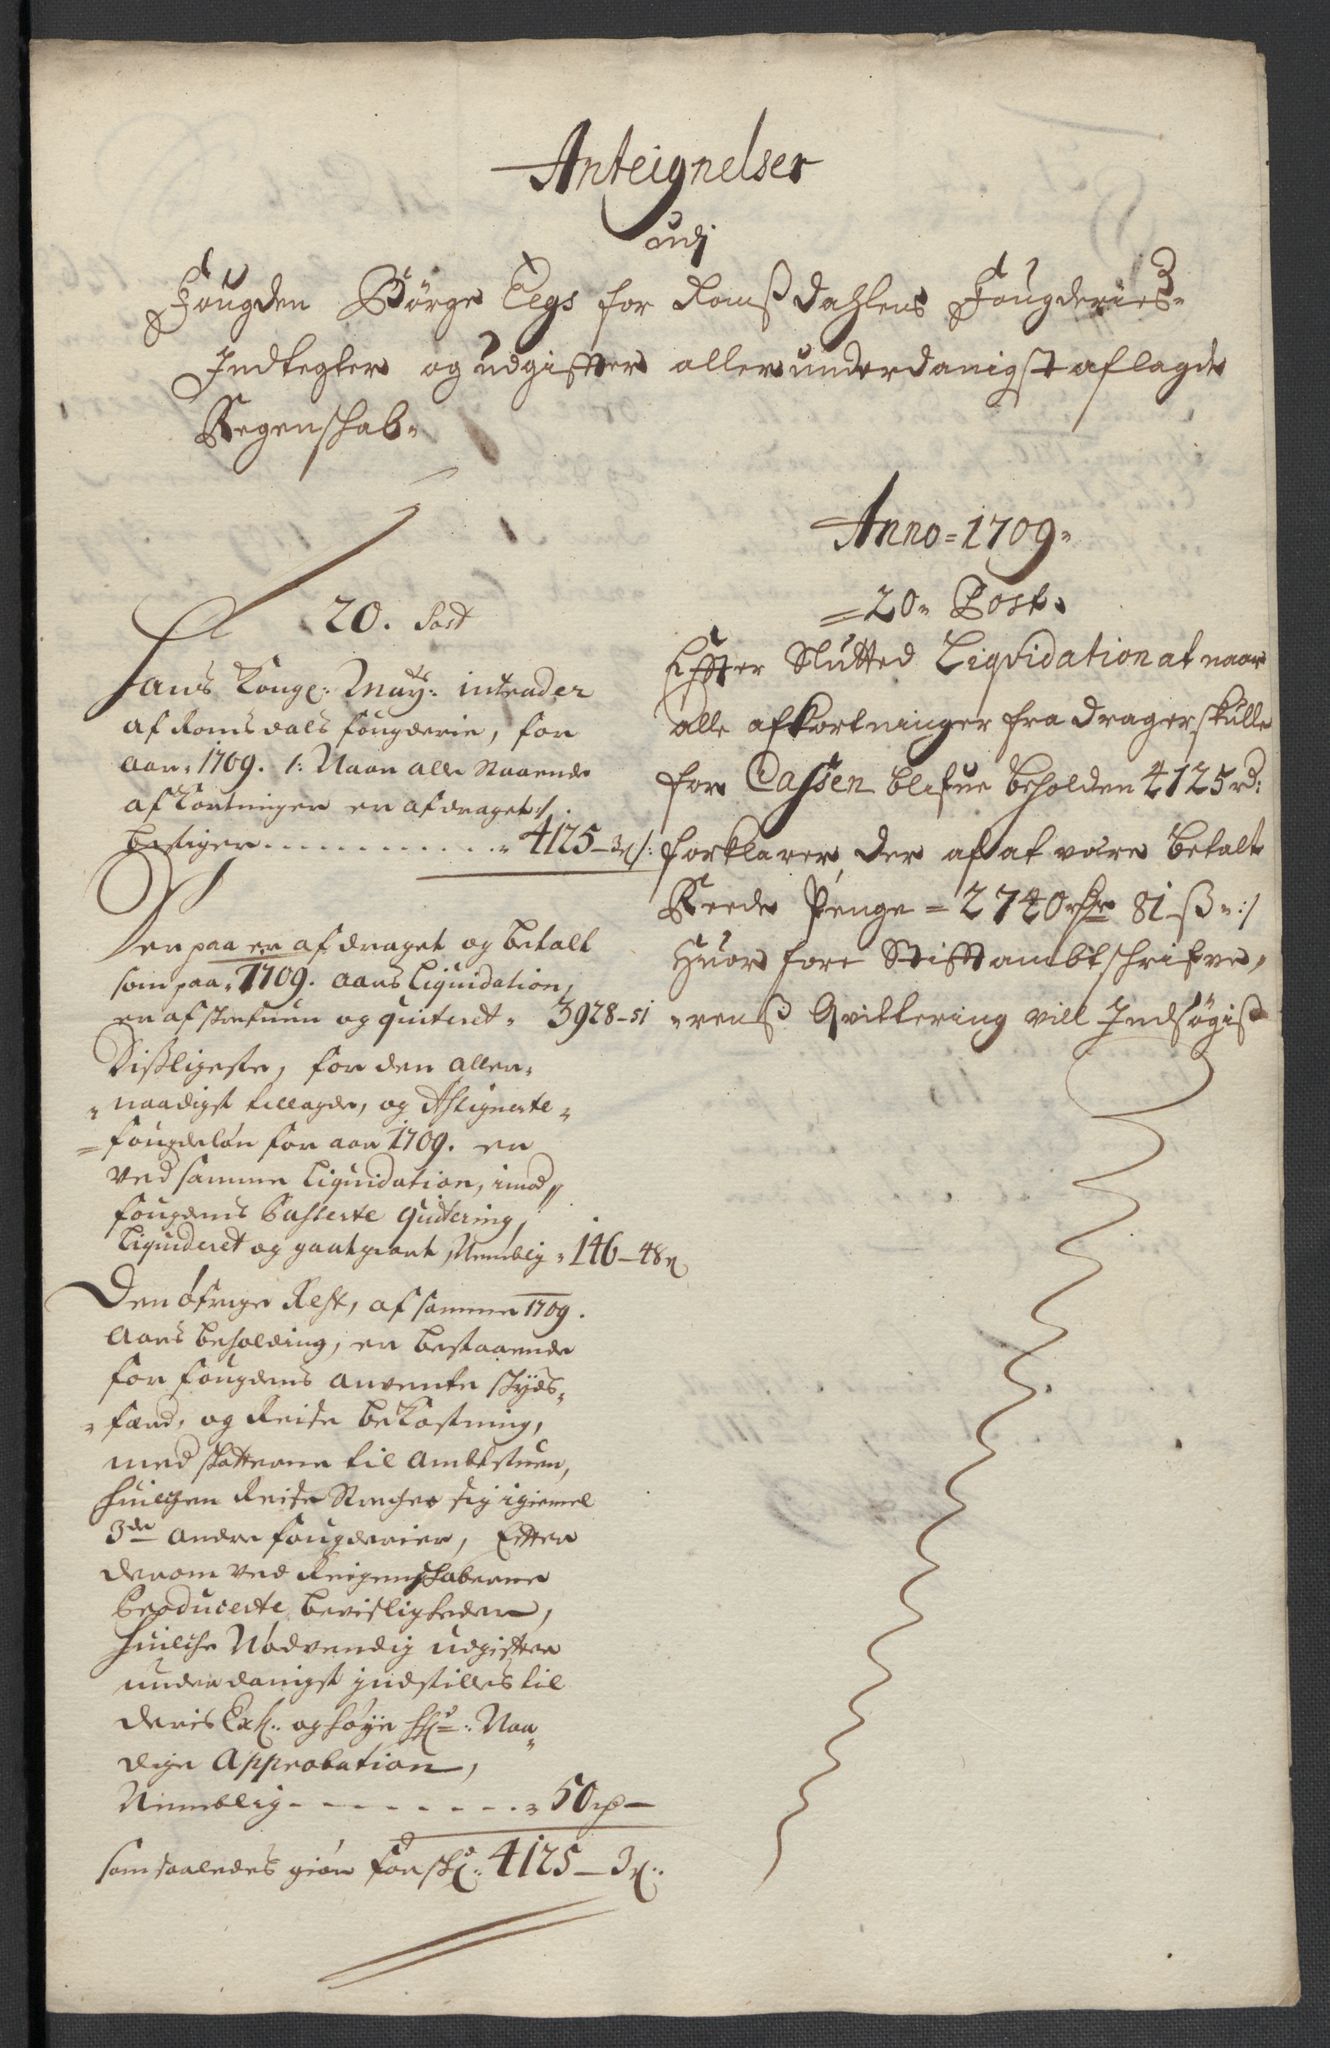 Anteignelser
udj
Fougden Børge Eegs for Romßdahlens Fougderies
Indtegter og udgiffter allerunderdanigst aflagde
Regenschab
Anno = 1709 =
= 20 = Post
Effter Slutted Liqvidation at naar
alle afkortninger fra drages, skulle
for Cassen blifue beholden 4125 rd:
forklares, der af at være betalt
Reede Penge = 2740 rdr 81 ß :/
Huor fore Stifftambtschrifve,
rens Qvittering vill Indsøgis
20. Post
Hans Kongl: Mayts: intrader
af Romsdals fougderie, for
aar 1709. /: Naar alle Staaende
afkortninger er afdraget :/
bestiger . . . . . . . . . . . 4125 – 3 /:
Her paa er afdraget og betalt
som paa 1709. aars Liquidation,
er afskrefuen og quiteret 3928 – 51
Disligeste, for den aller,
naadigst tillagde, og Assignerte
fougdeløn for aar 1709. er
ved samme Liquidation, imod
fougdens Passerte quitering,
Liquideret og gaatgiort, Nemblig 146 – 48
Den øfrige Rest, af samme 1709.
Aars beholding, er bestaaende
for fougdens anvente skyds,
færd, og Reise bekostning,
med skatterne til Ambtstuen,
huilchen Reise Strecher sig igiemel
3de andre fougderier, Efter
derom ved Reigenskaberne
Producerte bevisligheder,
huilche Nødvendig udgifter
underdanigst indstilles til
deris Exl: og høye Naa,
dige Approbation,
Nemblig - - - - - - - - 50 –
som saaledes giør forskl: 4125 – 3